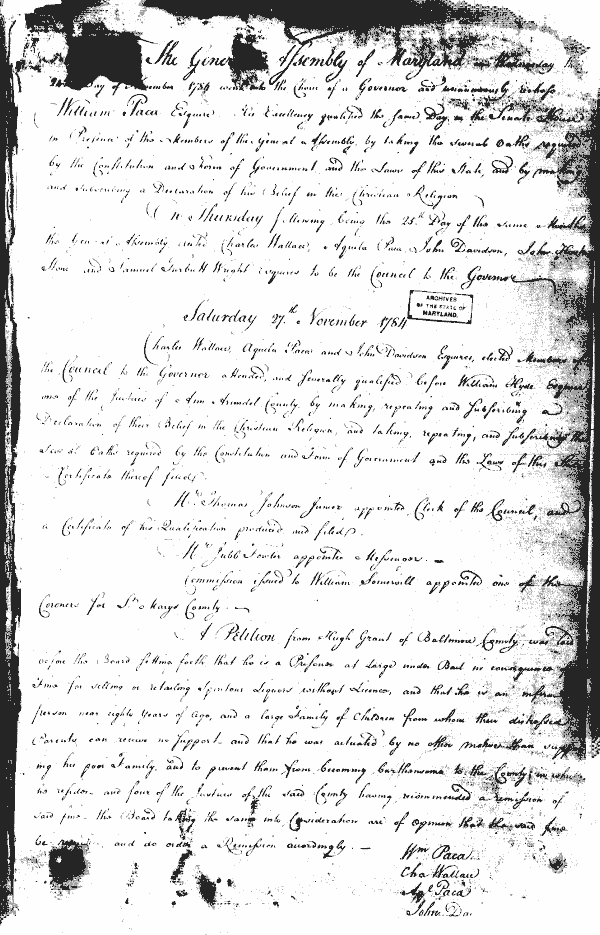 The General Assembly of Maryland on Wednesday
Day of November 1784 went into the Choice of a Governor and unanimously rechose
William Paca Esquire His Excellency qualified the same Day in the Senate House
in Presence of the Members of the General Assembly, by taking the several Oaths required
by the Constitution and Form of Government, and the Laws of this State, and by making
and subscribing a Declaration of his Belief in the Christian Religion
On Thursday following being the 25th Day of the same Month
the General Assembly elected Charles Wallace, Aquila Paca John Davidson, John Hoskins
Stone and Samuel Turbutt Wright Esquires to be the Council to the Governor
ARCHIVES
OF THE STATE OF
MARYLAND.
Saturday 27.th November 1784
Charles Wallace, Aquila Paca and John Davidson Esquires, elected Members of
the Council to the Governor attended, and severally qualified before William Hyde Esquire
one of the Justices of Ann Arundel County by making, repeating and Subscribing a
Declaration of their Belief in the Christian Religion, and taking, repeating, and Subscribing the
several Oaths required by the Constitution and Form of Government and the Laws of this State
Certificate thereof filed.
Mr. Thomas Johnson Junior appointed Clerk of the Council, and
a Certificate of his Qualification produced and filed.
Mr. Jubb Fowler appointed Messenger. —
Commission issued to William Somervill appointed one of the
Coroners for St. Marys County. —
A Petition from Hugh Grant of Baltimore County was laid
before the Board setting forth that he is a Prisoner at Large under Bail in consequence of
Fine for selling or retailing Spiritous Liquors without Licence, and that he is an infirm
person near eighty Years of Age, and a large Family of Children from whom their distressed
Parents, can receive no Support and that he was actuated by no other motive than suppor
ing his poor Family, and to prevent them from becoming burthensome to the County in which
he resides. and four of the Justices of the said County having recommended a remission of
said fine. the Board taking the same into Consideration are of opinion that the said fine
be and do order a Remission accordingly. —
Wm Paca
Cha Wallace
Aql Paca
John Da